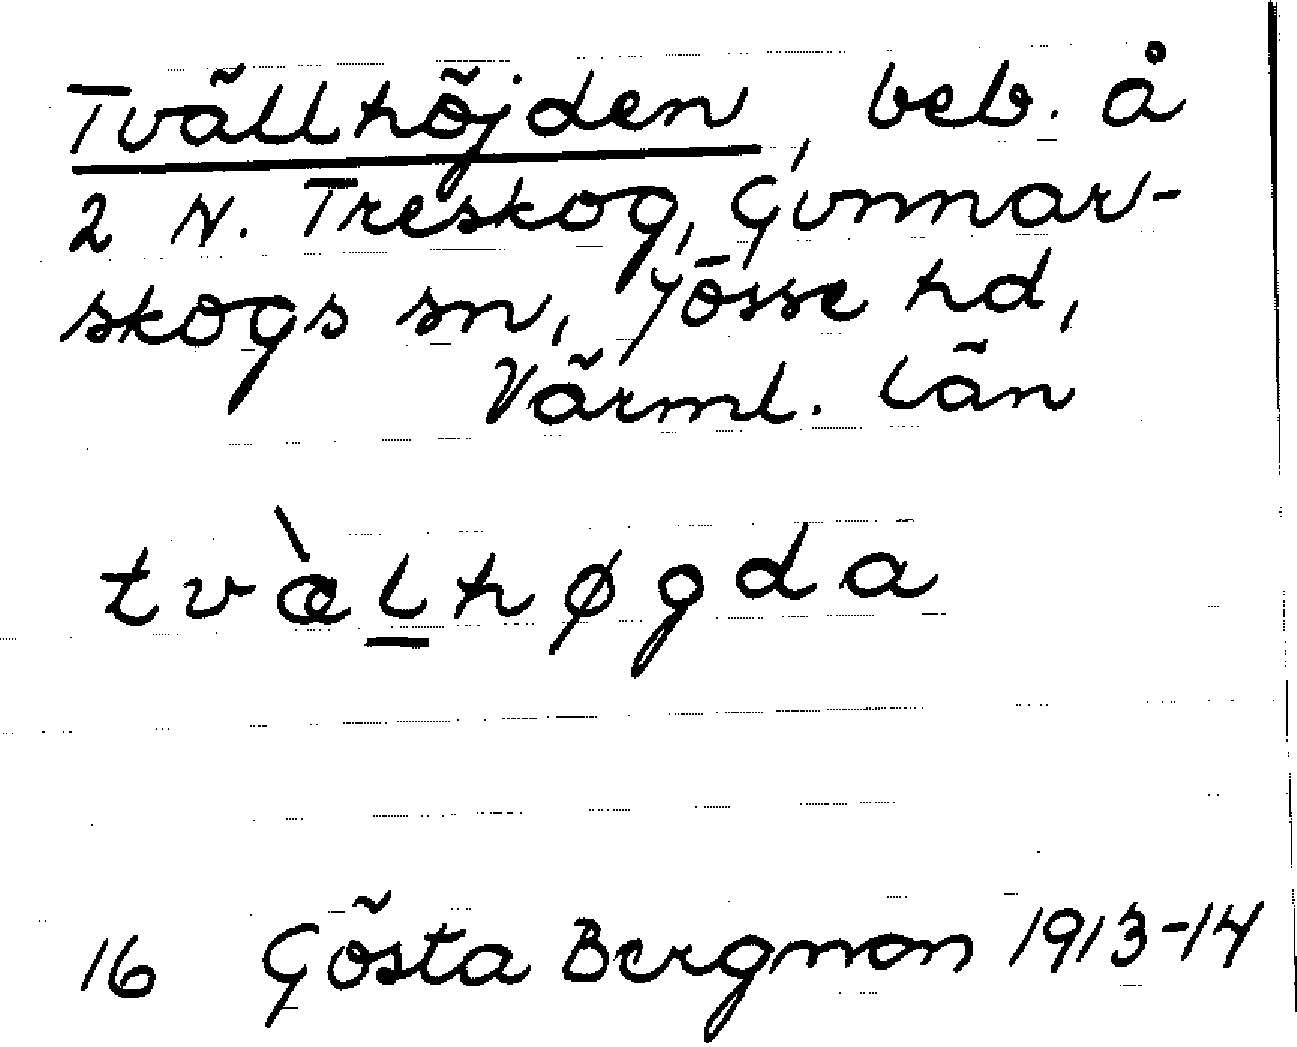 Tvällhöjden, beb. å
2 N. Treskog, Gunnar-
skogs sn, Jösse hd,
Värml. län
tvæ̀l̲høgda
16 Gösta Bergman 1913-14